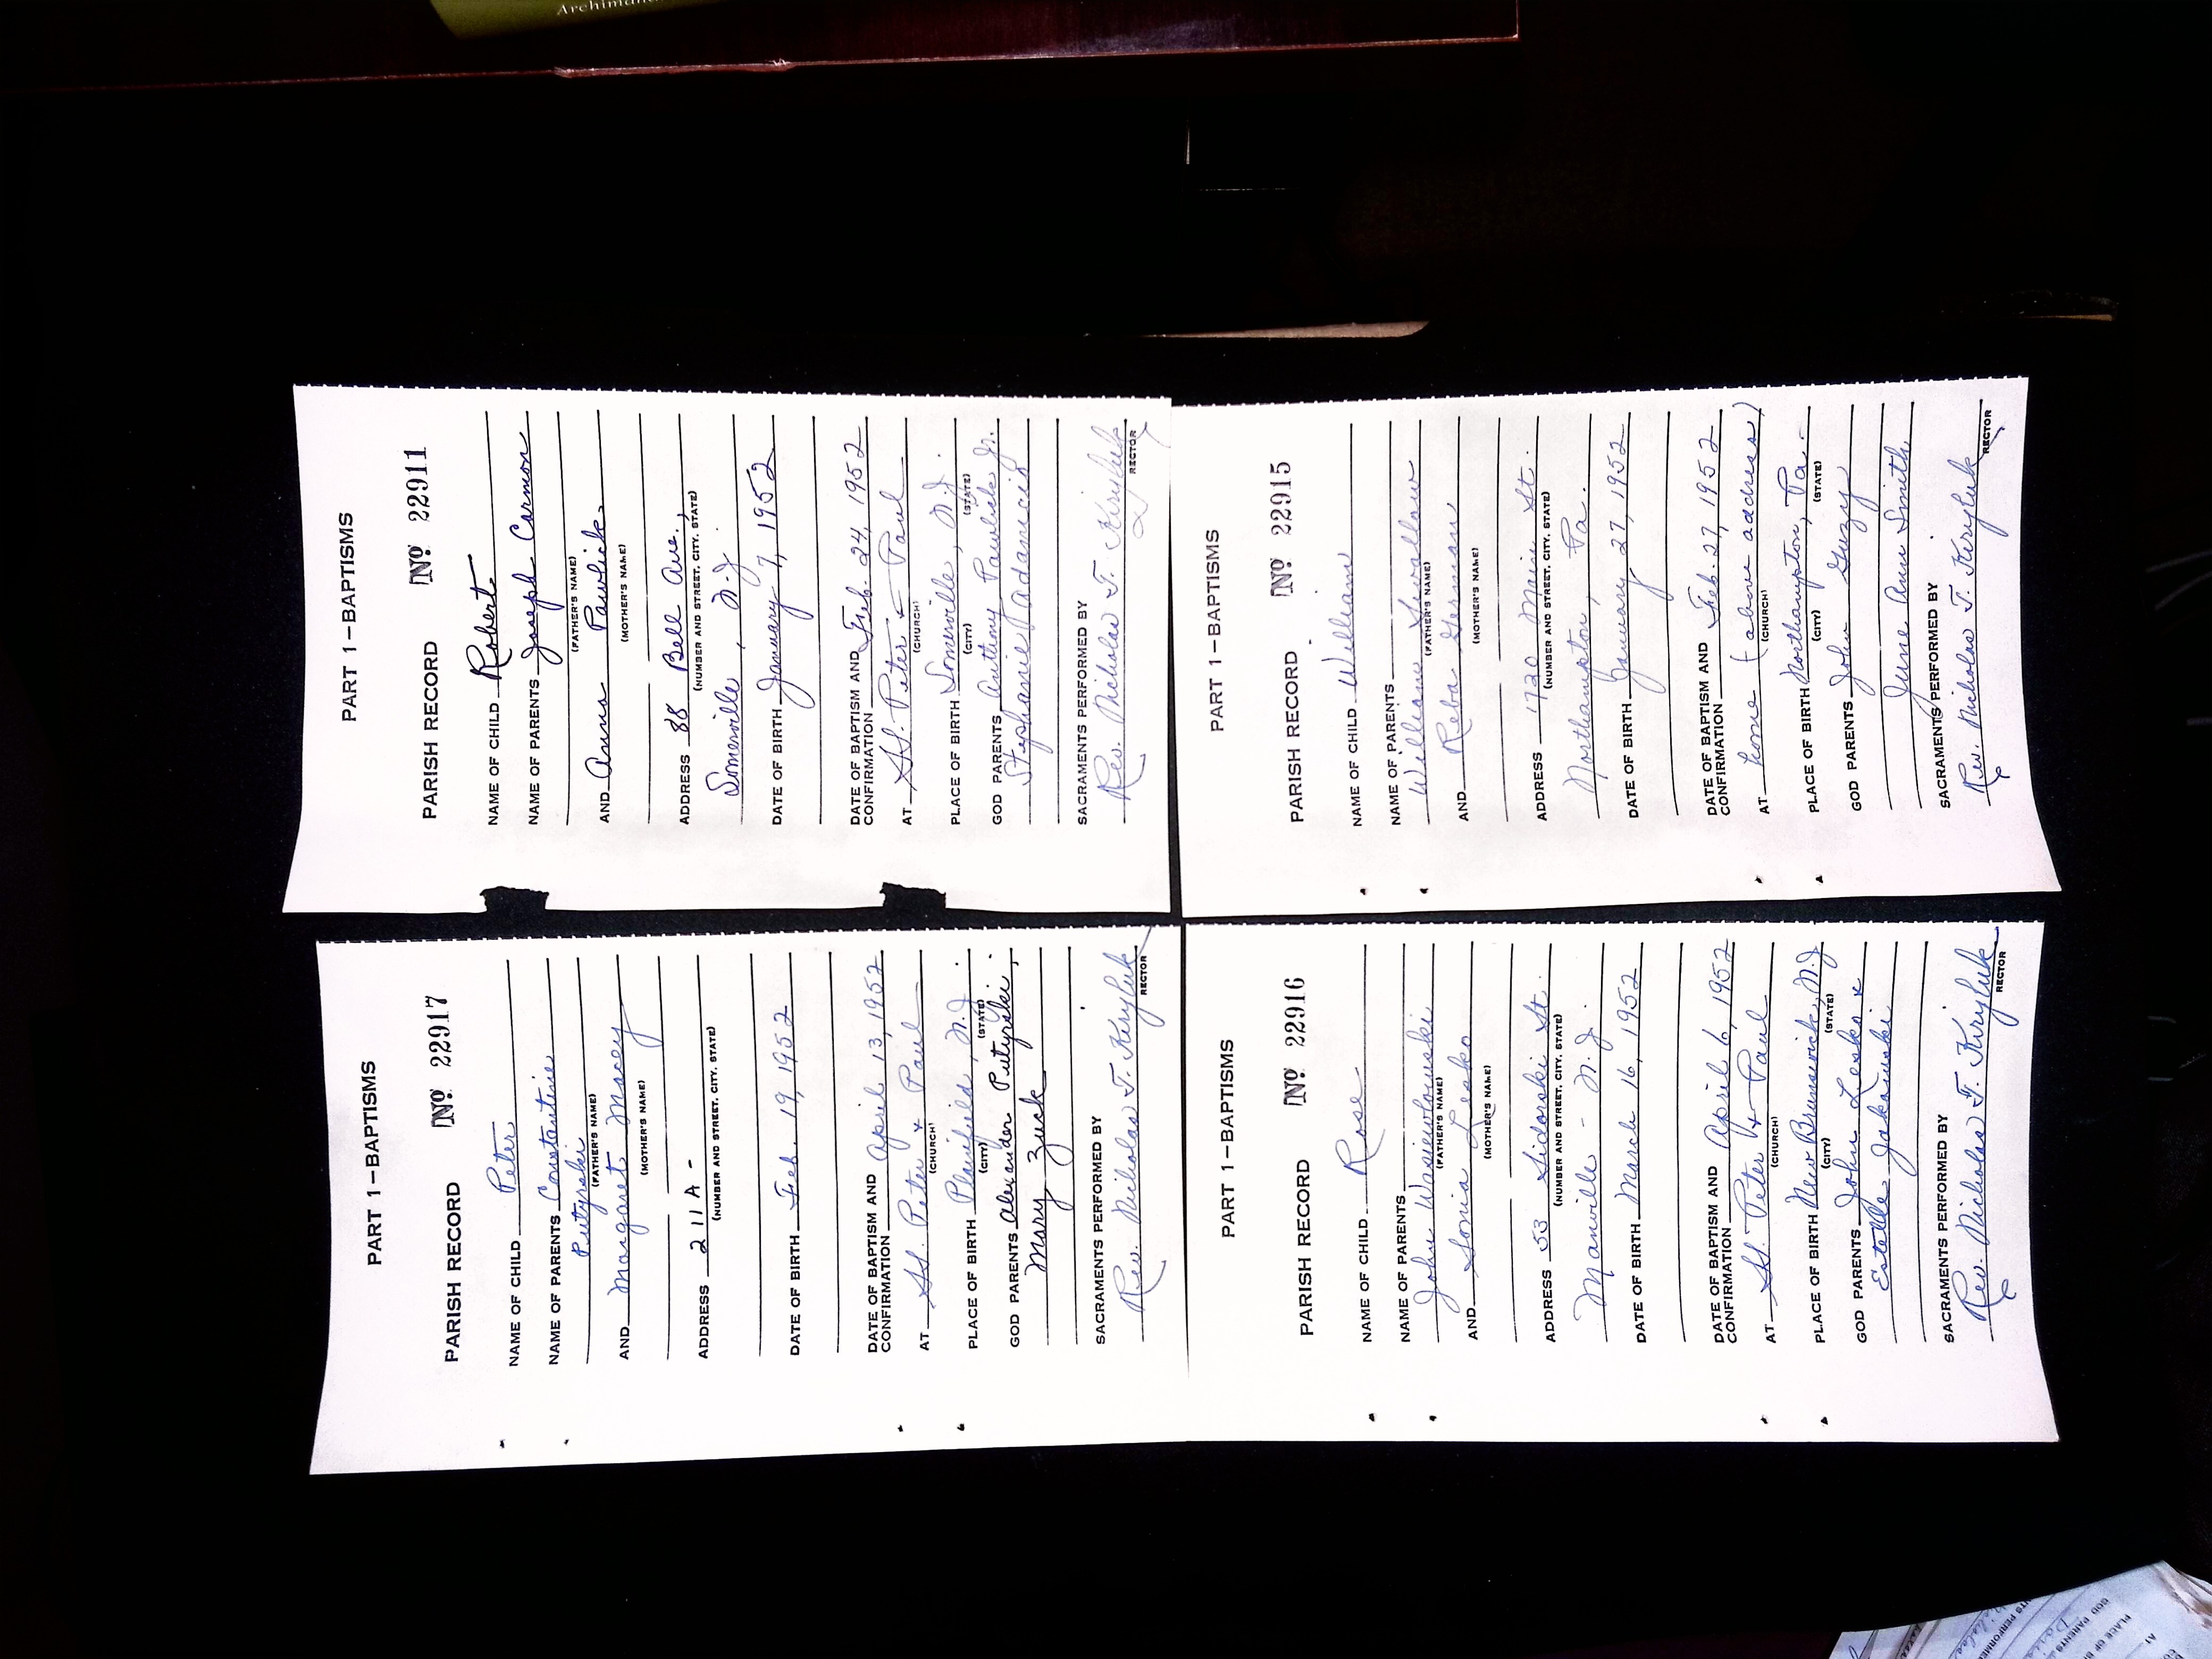 PART 1—BAPTISMS
PARISH RECORD No 22917
NAME OF CHILD Peter
NAME OF PARENTS Constantine
Putyrski
(FATHER'S NAME)
AND Margaret Macey
(MOTHER'S NAME)
ADDRESS 211A -
(NUMBER AND STREET, CITY, STATE)
DATE OF BIRTH Feb. 19, 1952
DATE OF BAPTISM AND
CONFIRMATION April 13, 1952
AT SS. Peter + Paul
(CHURCH)
PLACE OF BIRTH Plainfield, N.J.
(CITY) (STATE)
GOD PARENTS Alexander Putyrski,
Mary Zuck
SACRAMENTS PERFORMED BY
Rev. Nicholas T. Kiryluk
RECTOR
PART 1—BAPTISMS
PARISH RECORD No 22911
NAME OF CHILD Robert
NAME OF PARENTS Joseph Carmon
(FATHER'S NAME)
AND Anna Pawlick
(MOTHER'S NAME)
ADDRESS 88 Bell Ave.,
(NUMBER AND STREET, CITY, STATE)
Somerville, N.J.
DATE OF BIRTH January 7, 1952
DATE OF BAPTISM AND
CONFIRMATION Feb. 24, 1952
AT SS. Peter & Paul
(CHURCH)
PLACE OF BIRTH Somerville, N.J.
(CITY) (STATE)
GOD PARENTS Anthony Pawlick Jr.
Stephanie
SACRAMENTS PERFORMED BY
Rev. Nicholas T. Kiryluk
RECTOR
PART 1—BAPTISMS
PARISH RECORD No 22916
NAME OF CHILD Rose
NAME OF PARENTS
John Wasiewlowski
(FATHER'S NAME)
AND Sonia Lesko
(MOTHER'S NAME)
ADDRESS 53 Sidorski St.
(NUMBER AND STREET, CITY, STATE)
Manville - N.J.
DATE OF BIRTH March 16, 1952
DATE OF BAPTISM AND
CONFIRMATION April 6, 1952
AT SS. Peter + Paul
(CHURCH)
PLACE OF BIRTH New Brunswick, N.J
(CITY) (STATE)
GOD PARENTS John Lesko &
Estelle
SACRAMENTS PERFORMED BY
Rev. Nicholas T. Kiryluk
RECTOR
PART 1—BAPTISMS
PARISH RECORD No 22915
NAME OF CHILD William
NAME OF PARENTS
William Swallow
(FATHER'S NAME)
AND Reba German
(MOTHER'S NAME)
ADDRESS 1720 Main St.
(NUMBER AND STREET, CITY, STATE)
Northampton, Pa.
DATE OF BIRTH January 27, 1952
DATE OF BAPTISM AND
CONFIRMATION Feb. 27, 1952
AT home (above address)
(CHURCH)
PLACE OF BIRTH Northampton, Pa.
(CITY) (STATE)
GOD PARENTS John Guzy
June Ann Smith
SACRAMENTS PERFORMED BY
Rev. Nicholas T. Kiryluk
RECTOR